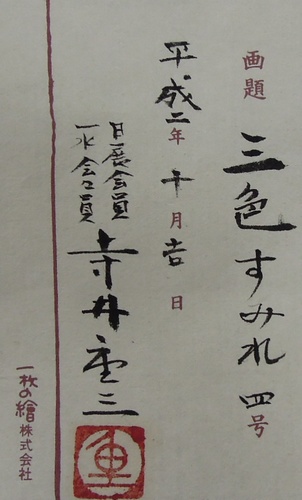 画題 三色すみれ 四号
平成二年 十月吉日
日展会員
一水会会員
寺井重三
重
一枚の繪株式会社